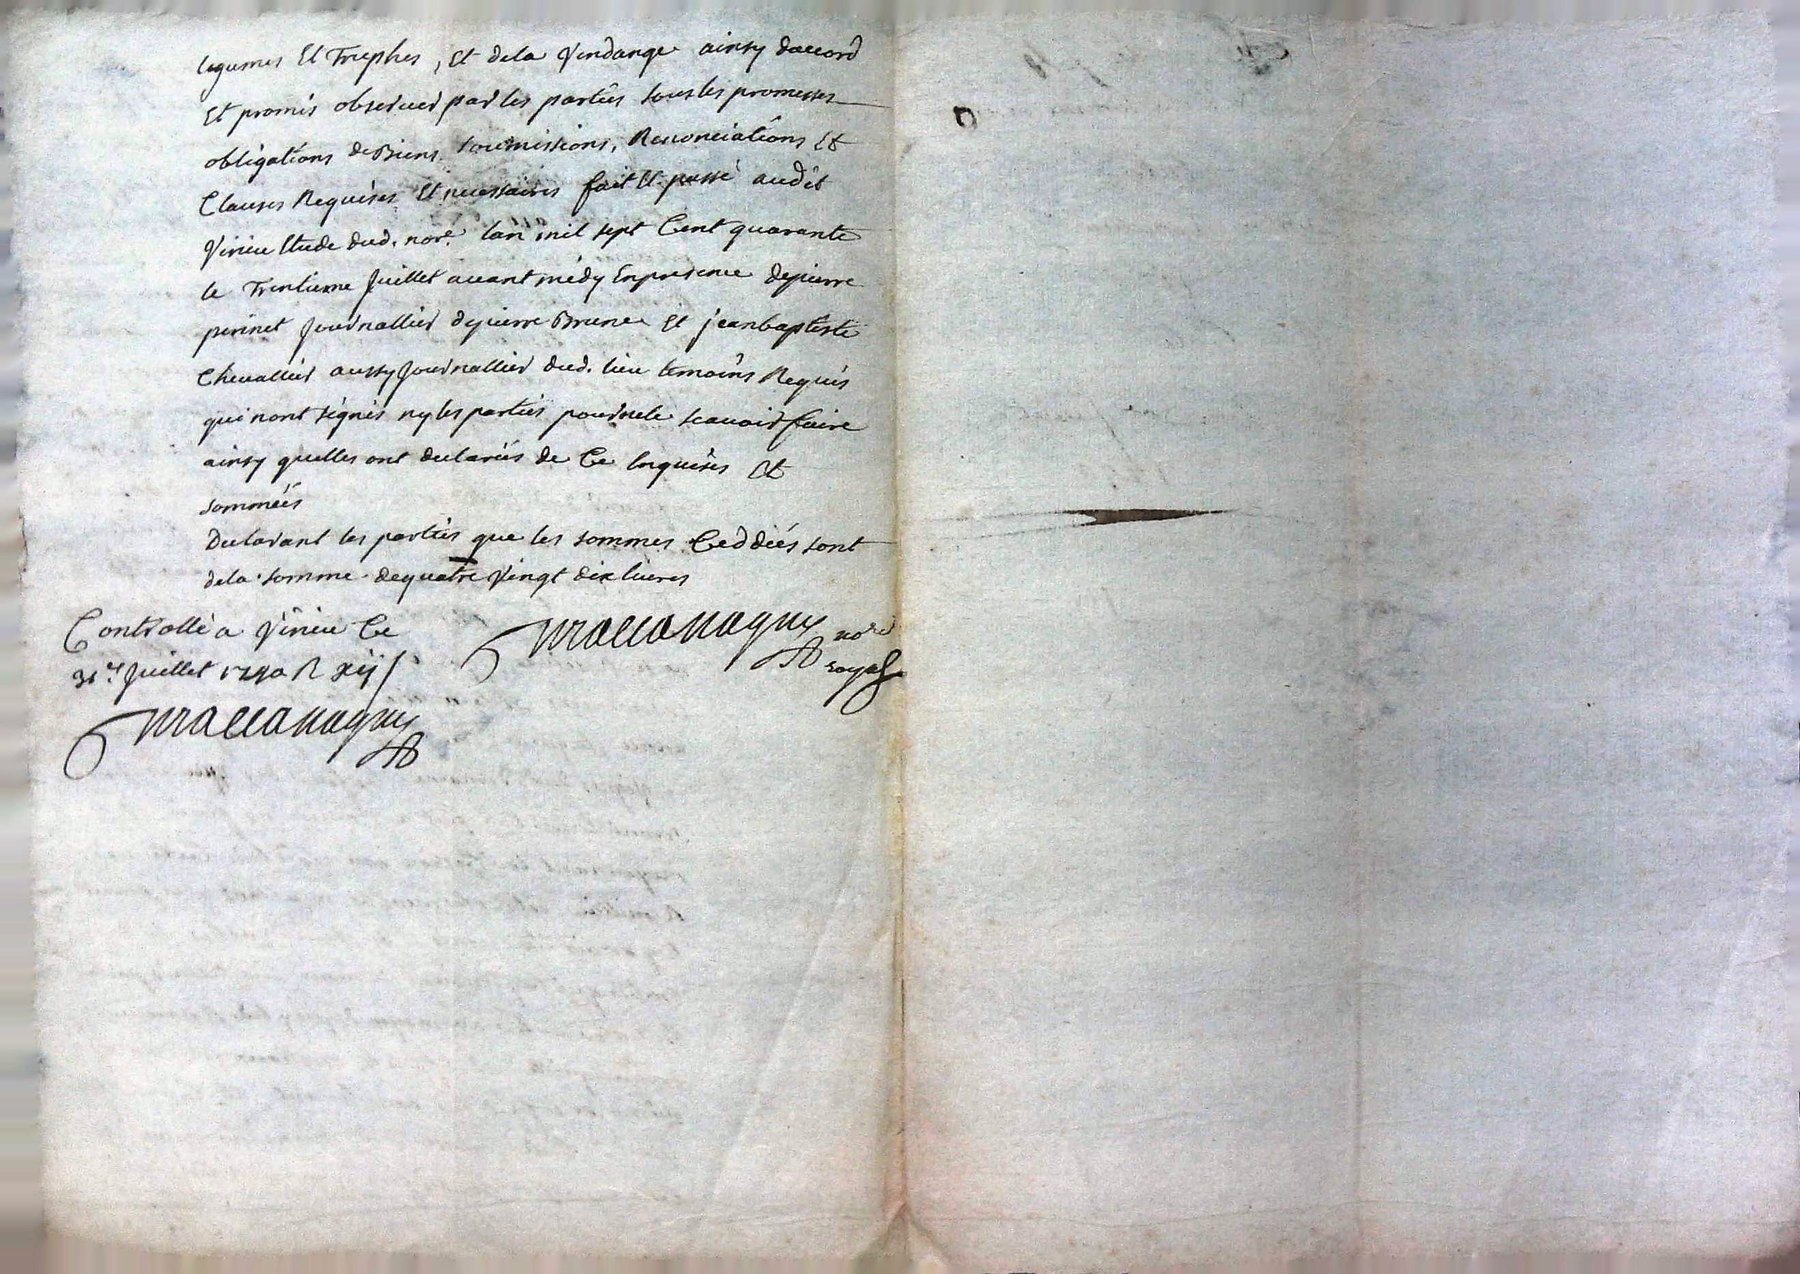 legumes Et Trephes, Et dela Vendange ainsy daccord
Et promis observer par les parties sous les promesses
obligations de Biens soumissions, Renonciations Et
Clauses Requises Et necessaires fait Et passé audit
Virieu Etude dud. nore. lan mil sept Cent quarante
le Trentieme Juillet avant midy En presence depierre
perinet Journallier depierre Brune Et jeanbaptiste
Chevallier aussy Journallier dud. lieu temoins Requis
qui nont signés ny les parties pour nele scavoir faire
ainsy quelles ont declarées de Ce Enquises Et
sommées
Declarant les parties que les sommes Ceddées sont
dela somme dequatre Vingt dix livres
Controllé a Virieu Ce
31e. Juillet 1740 R xij s
nore
royal